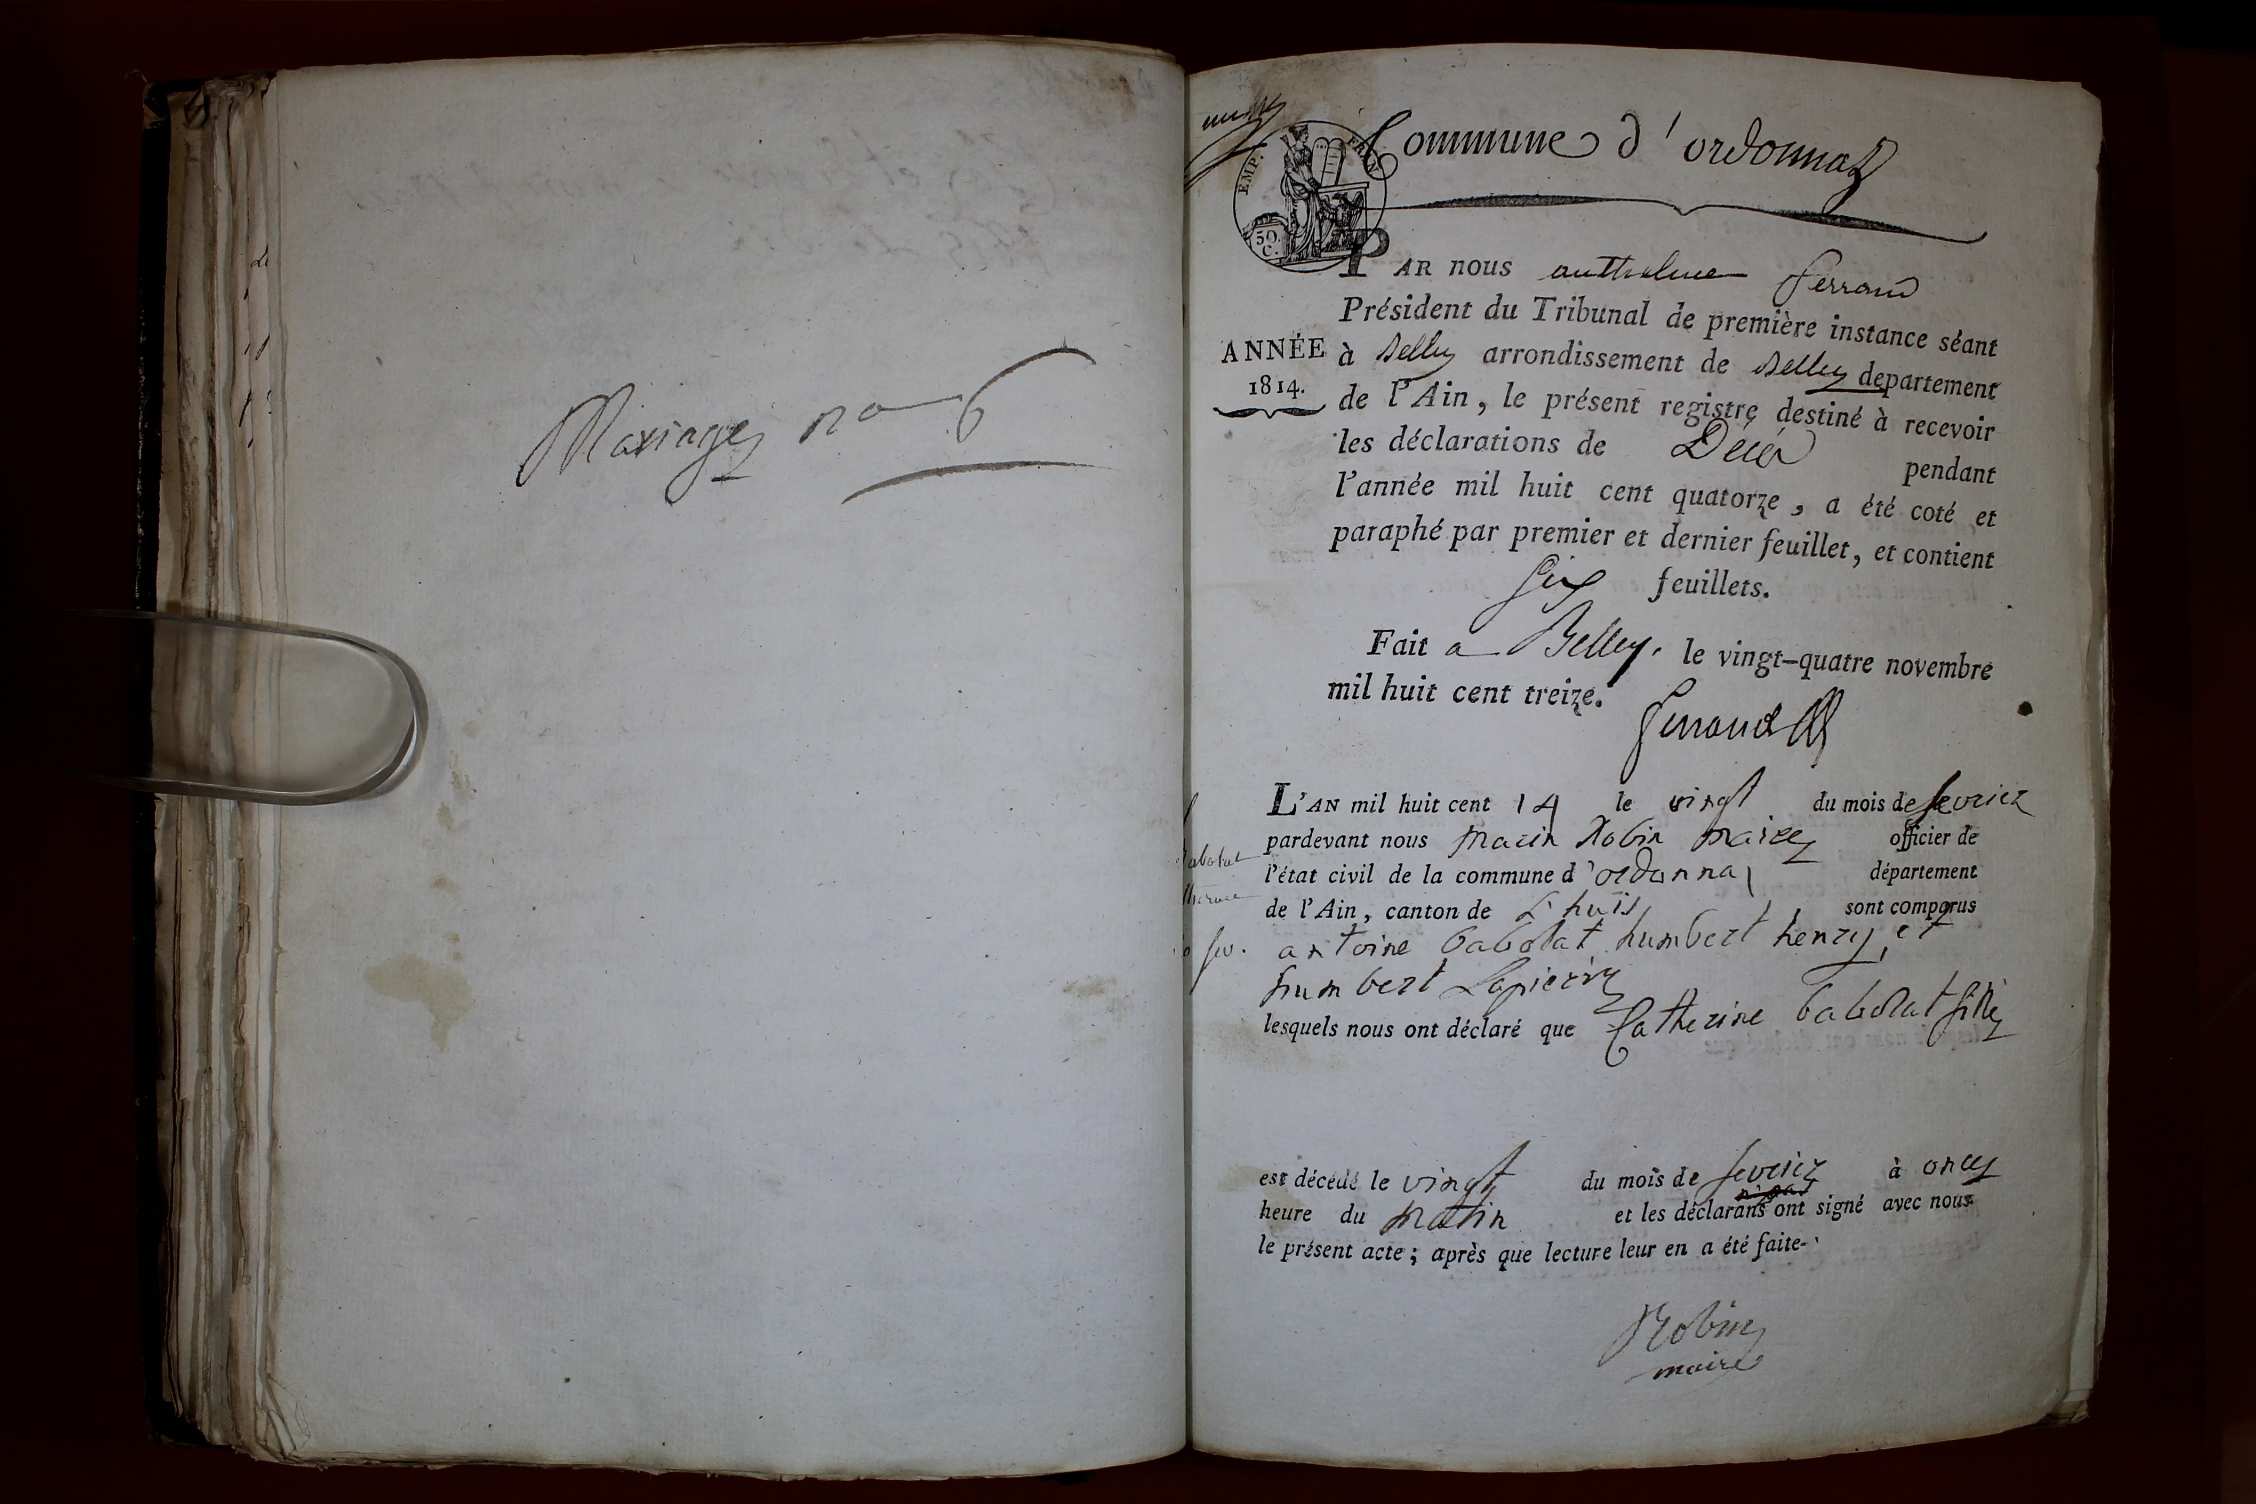 Mariages no 6
Commune d'ordonnaz
EMP. FRAN
50.
C.
PAR nous anthelme ferrand
Président du Tribunal de première instance séant
ANNÉE
1814.
à Belley arrondissement de Belley departement
de l'Ain, le présent registre destiné à recevoir
les déclarations de Décès pendant
l'année mil huit cent quatorze, a été coté et
paraphé par premier et dernier feuillet, et contient
six feuillets.
Fait a Belley. le vingt-quatre novembre
mil huit cent treize.
ferrand
L'AN mil huit cent 14 le vingt du mois de fevrier
pardevant nous marin Robin maire officier de
l'état civil de la commune d'ordonna département
de l'Ain, canton de L'huis sont comparus
antoine babolat humbert henry, et
humbert Lapierre
lesquels nous ont déclaré que Catherine babolat fille
est décédé le vingt du mois de fevrier à onze
heure du matin et les déclarans n'ont signé avec nous
le présent acte; après que lecture leur en a été faite-
Robin
maire